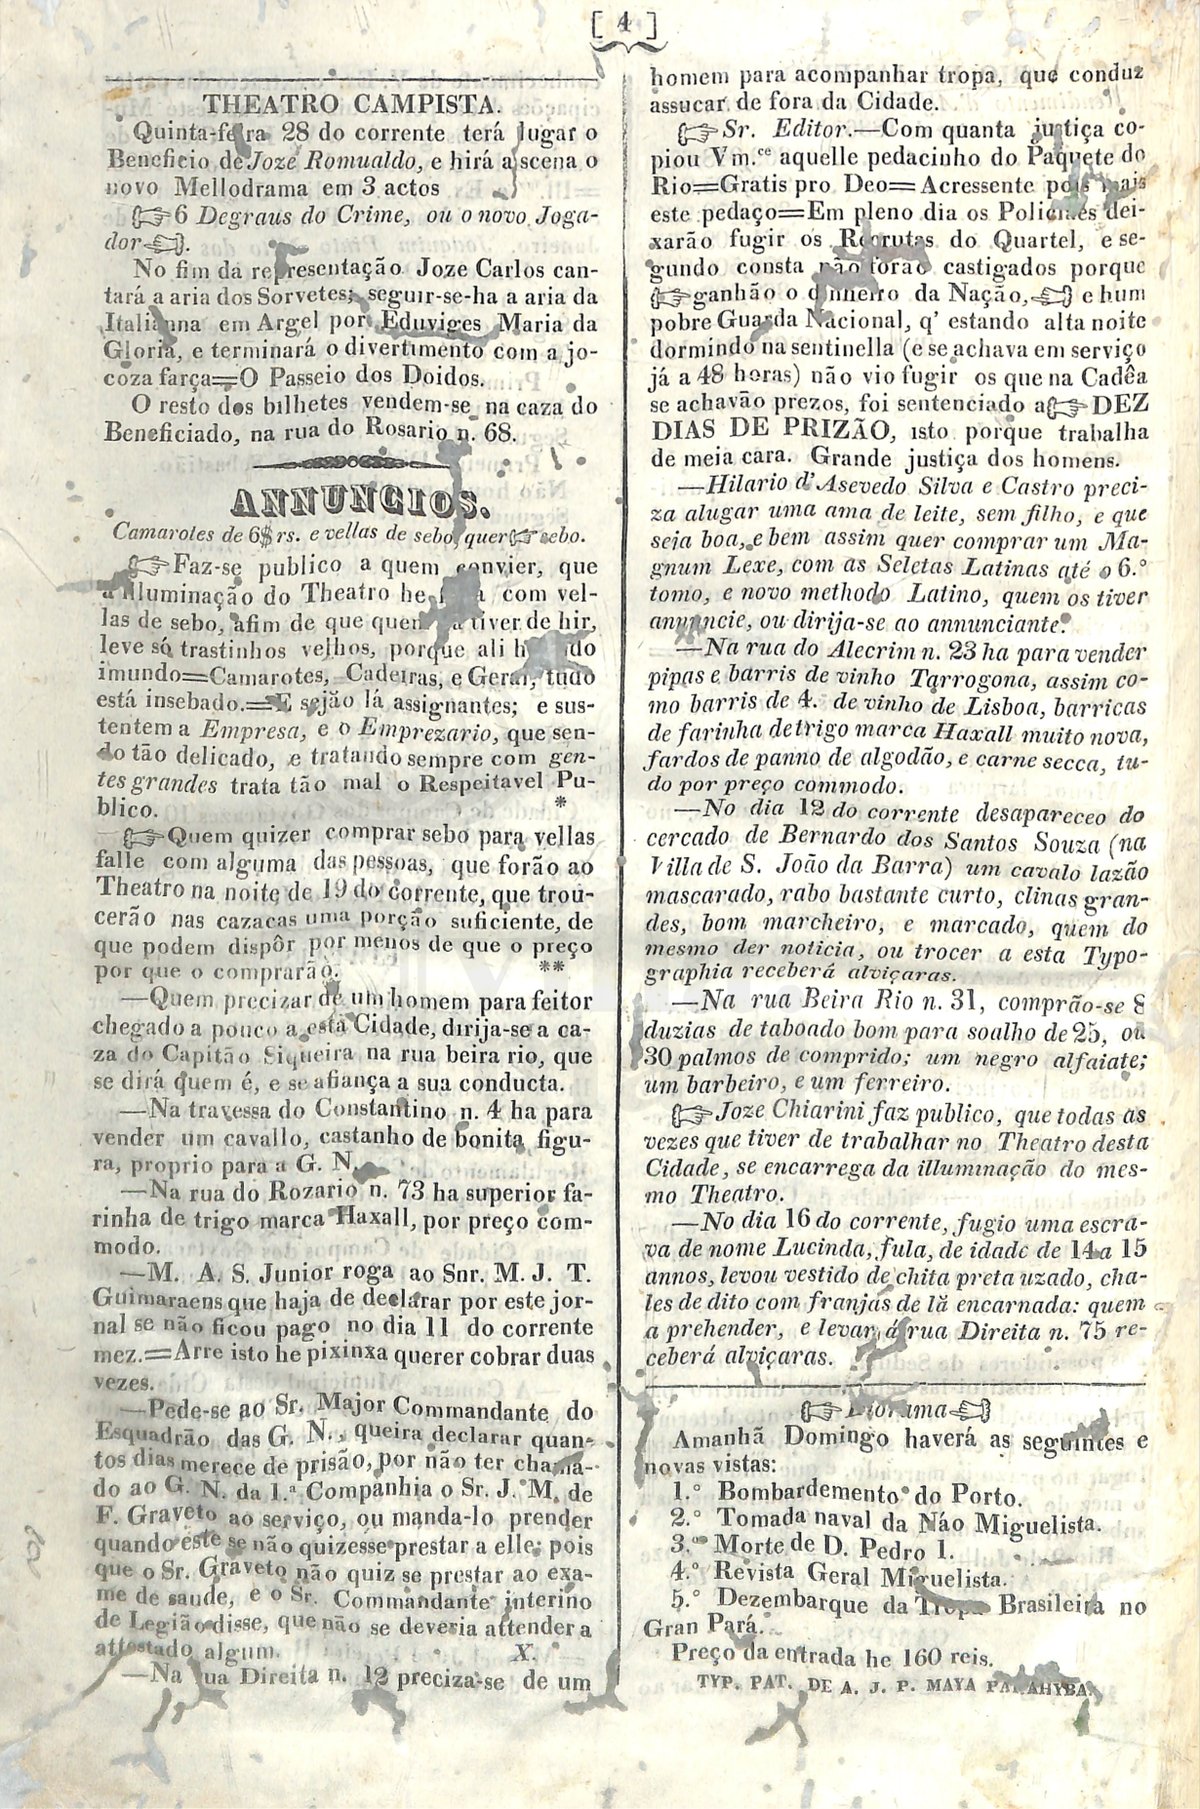 [ 4 ]
THEATRO CAMPISTA.
Quinta-feira 28 do corrente terá lugar o
Beneficio de Joze Romualdo, e hirá a scena o
novo Mellodrama em 3 actos
6 Degraus do Crime, ou o novo Joga-
dor.
No fim da representação Joze Carlos can-
tará a aria dos Sorvetes; seguir-se-ha a aria da
Italianna em Argel por Eduviges Maria da
Gloria, e terminará o divertimento com a jo-
coza farça=O Passeio dos Doidos.
O resto dos bilhetes vendem-se na caza do
Beneficiado, na rua do Rosario n. 68.
ANNUNCIOS.
Camarotes de 6$rs. e vellas de sebo, quer sebo.
Faz-se publico a quem convier, que
a illuminação do Theatro he com vel-
las de sebo, afim de que quem tiver de hir,
leve só trastinhos velhos, porque ali
imundo=Camarotes, Cadeiras, e Geral, tudo
está insebado.=E sejão lá assignantes; e sus-
tentem a Empresa, e o Emprezario, que sen-
do tão delicado, e tratando sempre com gen-
tes grandes trata tão mal o Respeitavel Pu-
blico. *
Quem quizer comprar sebo para vellas
falle com alguma das pessoas, que forão ao
Theatro na noite de 19 do corrente, que trou-
cerão nas cazacas uma porção suficiente, de
que podem dispôr por menos de que o preço
por que o comprarão. **
—Quem precizar de um homem para feitor
chegado a pouco a esta Cidade, dirija-se a ca-
za do Capitão Siqueira na rua beira rio, que
se dirá quem é, e se afiança a sua conducta.
—Na travessa do Constantino n. 4 ha para
vender um cavallo, castanho de bonita figu-
ra, proprio para a G. N.
—Na rua do Rozario n. 73 ha superior fa-
rinha de trigo marca Haxall, por preço com-
modo.
—M. A. S. Junior roga ao Snr. M. J. T.
Guimaraens que haja de declarar por este jor-
nal se não ficou pago no dia 11 do corrente
mez.=Arre isto he pixinxa querer cobrar duas
vezes.
—Pede-se ao Sr. Major Commandante do
Esquadrão das G. N., queira declarar quan-
tos dias merece de prisão, por não ter chama-
do ao G. N. da 1.ª Companhia o Sr. J. M. de
F. Graveto ao serviço, ou manda-lo prender
quando este se não quizesse prestar a elle; pois
que o Sr. Graveto não quiz se prestar ao exa-
me de saude, e o Sr. Commandante interino
de Legião disse, que não se deveria attender a
attestado algum. X.
—Na rua Direita n. 12 preciza-se de um
homem para acompanhar tropa, que conduz
assucar de fora da Cidade.
Sr. Editor.—Com quanta justiça co-
piou Vm.ce aquelle pedacinho do Paquete do
Rio=Gratis pro Deo=Acressente pois mais
este pedaço=Em pleno dia os Policiaes dei-
xarão fugir os Recrutas do Quartel, e se-
gundo consta não forão castigados porque
ganhão o dinheiro da Nação, e hum
pobre Guarda Nacional, q' estando alta noite
dormindo na sentinella (e se achava em serviço
já a 48 horas) não vio fugir os que na Cadêa
se achavão prezos, foi sentenciado a DEZ
DIAS DE PRIZÃO, isto porque trabalha
de meia cara. Grande justiça dos homens.
—Hilario d'Asevedo Silva e Castro preci-
za alugar uma ama de leite, sem filho, e que
seja boa, e bem assim quer comprar um Ma-
gnum Lexe, com as Seletas Latinas até o 6.º
tomo, e novo methodo Latino, quem os tiver
annuncie, ou dirija-se ao annunciante.
—Na rua do Alecrim n. 23 ha para vender
pipas e barris de vinho Tarrogona, assim co-
mo barris de 4. de vinho de Lisboa, barricas
de farinha de trigo marca Haxall muito nova,
fardos de panno de algodão, e carne secca, tu-
do por preço commodo.
—No dia 12 do corrente desapareceo do
cercado de Bernardo dos Santos Souza (na
Villa de S. João da Barra) um cavalo lazão
mascarado, rabo bastante curto, clinas gran-
des, bom marcheiro, e marcado, quem do
mesmo der noticia, ou trocer a esta Typo-
graphia receberá alviçaras.
—Na rua Beira Rio n. 31, comprão-se 8
duzias de taboado bom para soalho de 25, ou
30 palmos de comprido; um negro alfaiate;
um barbeiro, e um ferreiro.
Joze Chiarini faz publico, que todas as
vezes que tiver de trabalhar no Theatro desta
Cidade, se encarrega da illuminação do mes-
mo Theatro.
—No dia 16 do corrente, fugio uma escra-
va de nome Lucinda, fula, de idade de 14 a 15
annos, levou vestido de chita preta uzado, cha-
les de dito com franjas de lã encarnada: quem
a prehender, e levar á rua Direita n. 75 re-
ceberá alviçaras.
Diorama
Amanhã Domingo haverá as seguintes e
novas vistas:
1.º Bombardemento do Porto.
2.º Tomada naval da Náo Miguelista.
3.º Morte de D. Pedro 1.
4.º Revista Geral Miguelista.
5.º Dezembarque da Tropa Brasileira no
Gran Pará.
Preço da entrada he 160 reis.
TYP. PAT. DE A. J. P. MAYA PARAHYBA.